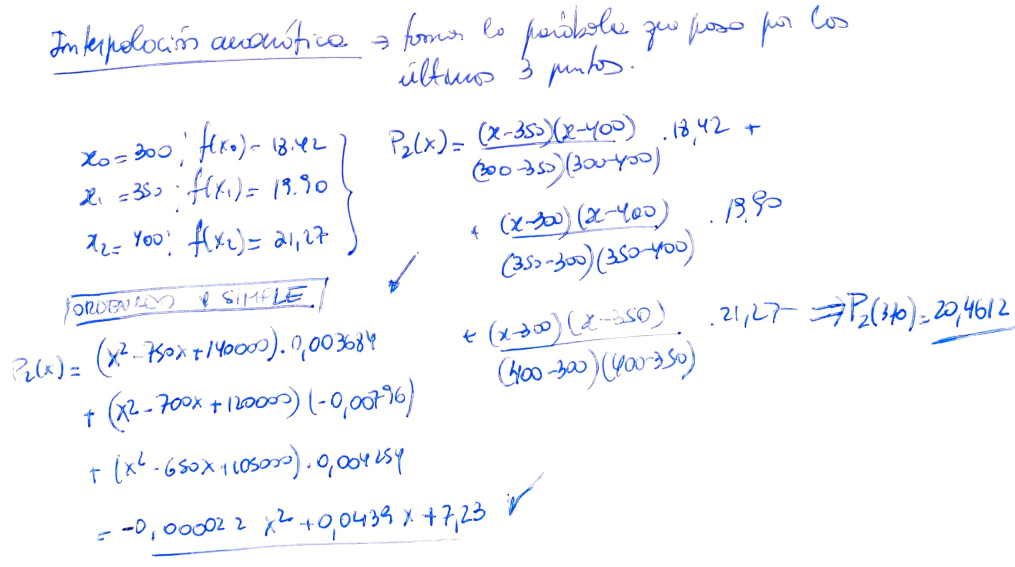 Interpolación cuadrática → tomar la parábola que pasa por los
últimos 3 puntos.
x₀ = 300 ; f(x₀) = 18.42
x₁ = 350 ; f(x₁) = 19.90
x₂ = 400 ; f(x₂) = 21,27
P₂(x) = (x-350)(x-400) / (300-350)(300-400) . 18,42 +
+ (x-300)(x-400) / (350-300)(350-400) . 19.90
+ (x-300)(x-350) / (400-300)(400-350) . 21,27 ⇒ P₂(370) = 20,4612
ORDENADO Y SIMPLE ✓
P₂(x) = (x² - 750x + 140000) . 0,003684
+ (x² - 700x + 120000) (-0,00796)
+ (x² - 650x + 105000) . 0,004254
= -0,000022 x² + 0,0439 x + 7,23 ✓